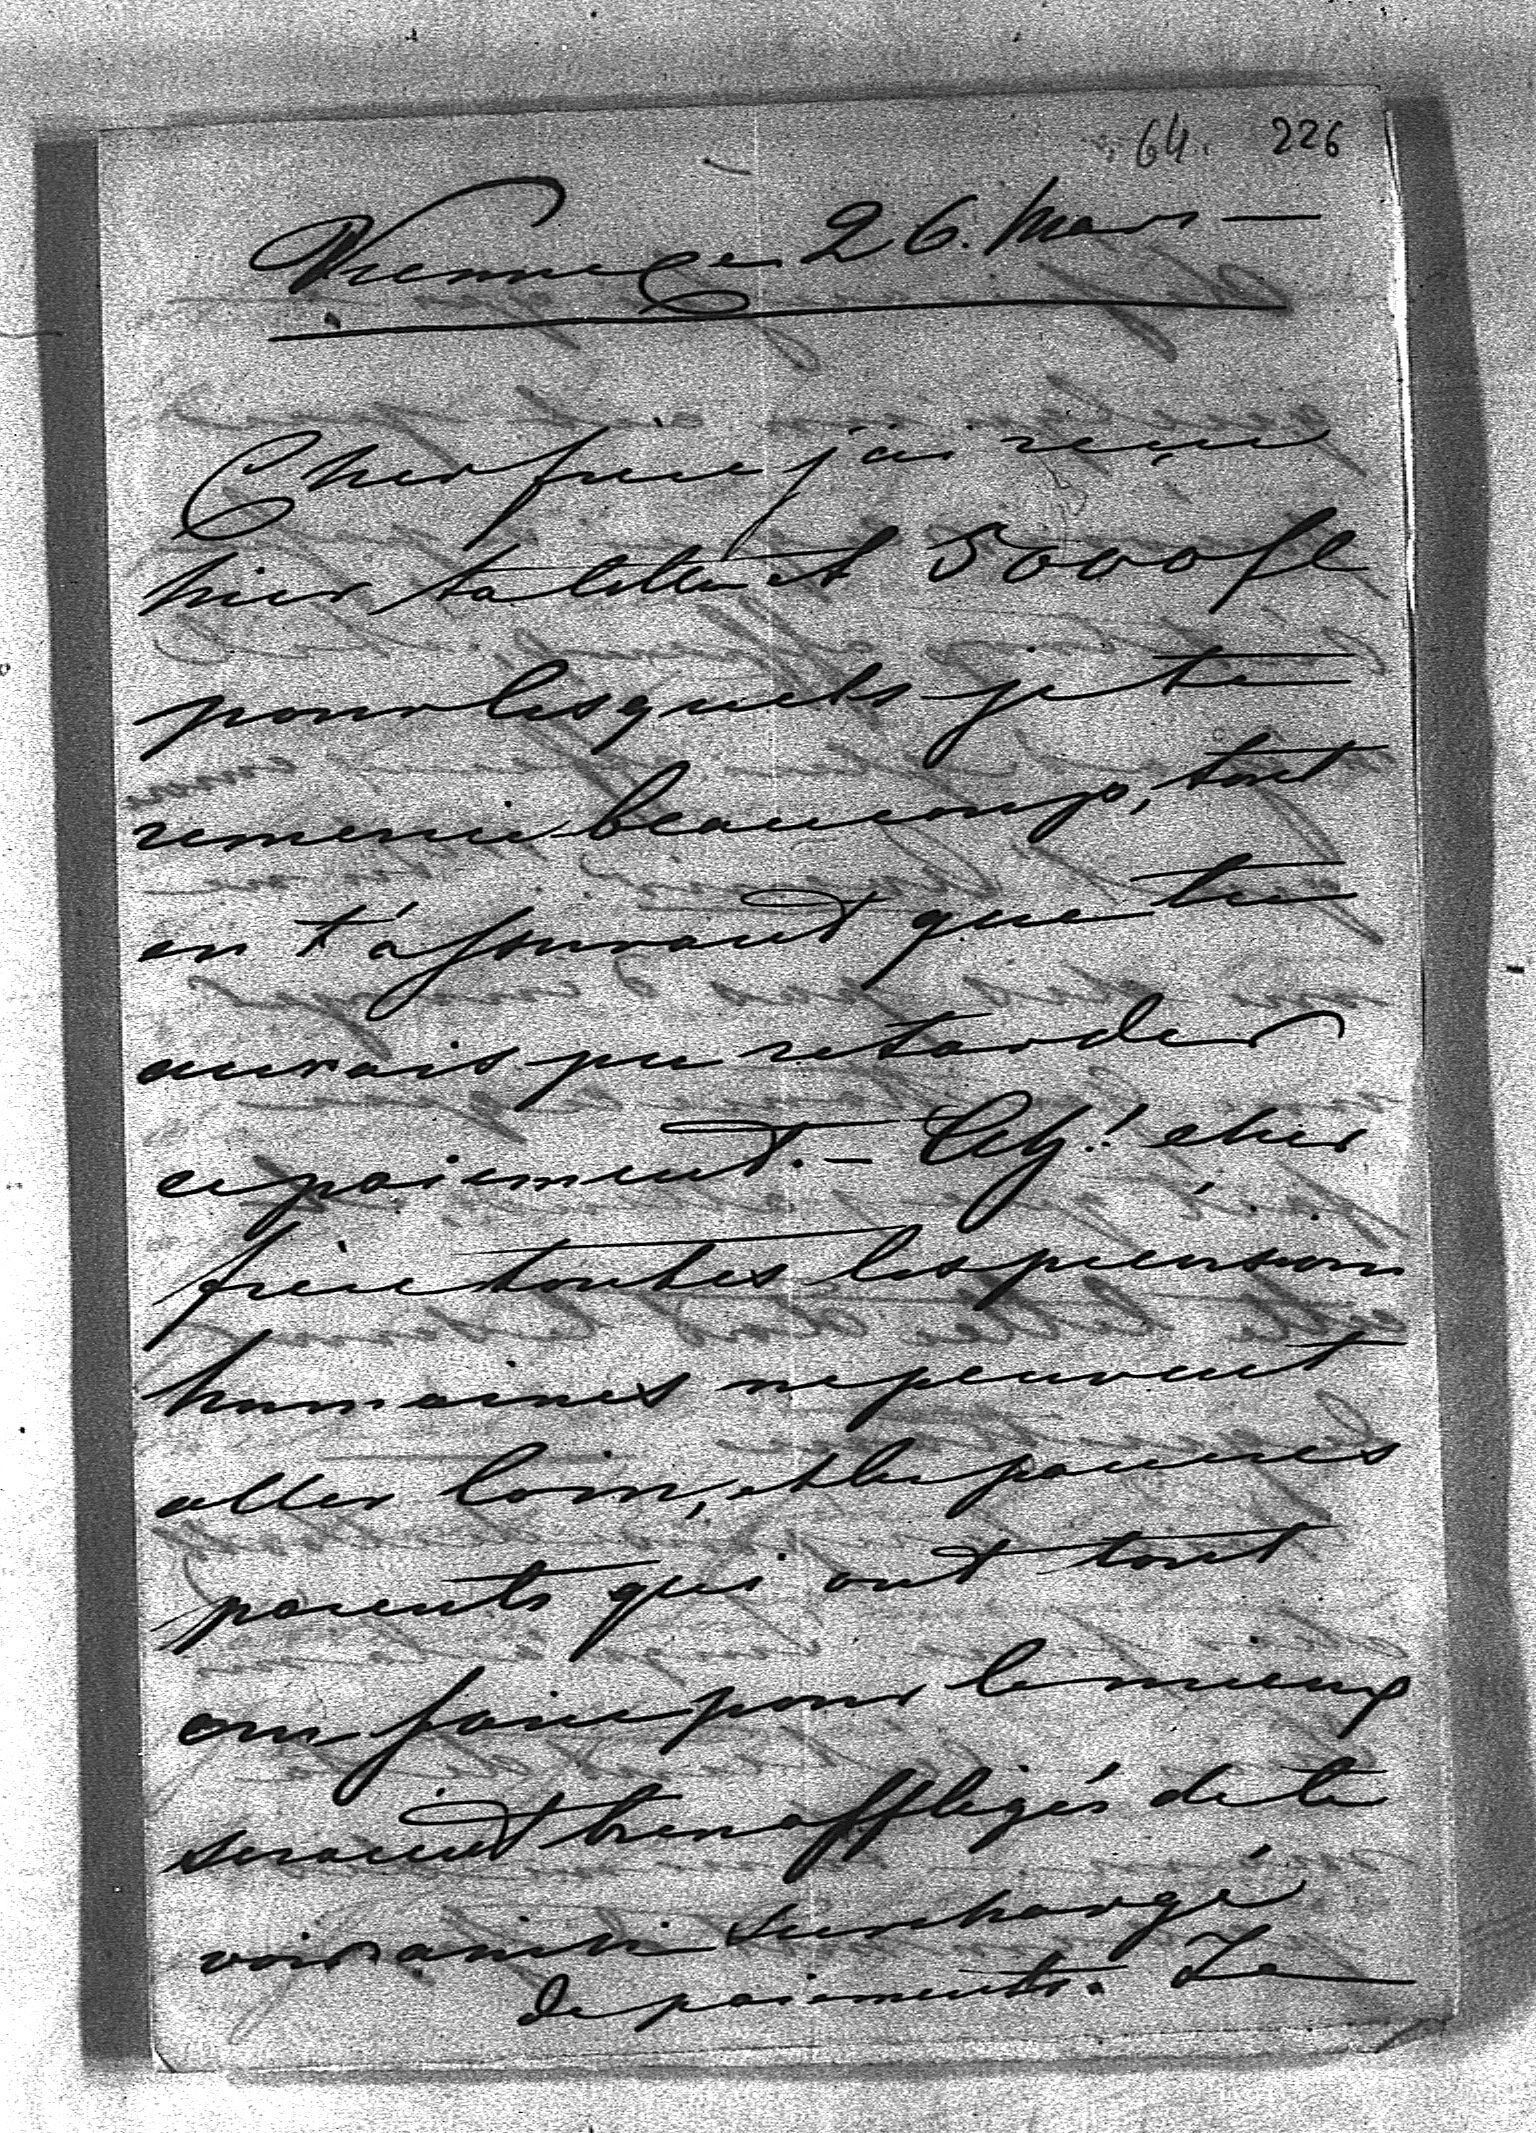 64. 226
Vienne ce 26. Mars —
Cher frère j'ai reçue
hier ta lettre et 5000 fl
pour lesquels je te
remercie beaucoup, tout
en t'assurant que tu
aurais pu retarder
ce paiement. — Ah! cher
frère toutes les prévisions
humaines ne peuvent
aller loin, et les pauvres
parents qui ont tout
cru faire pour le mieux
seraient bien affligés de te
voir ainsi surchargé
de paiements. Je